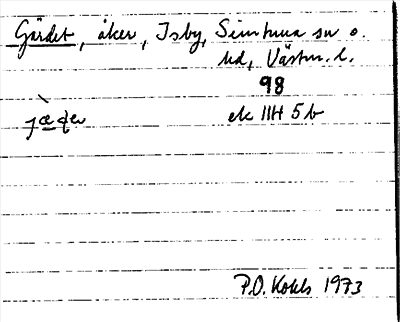 Gärdet, åker, Isby, Simtuna sn o.
hd, Västm. l.
98
ek 11H 5b
P.O. Kohls 1973